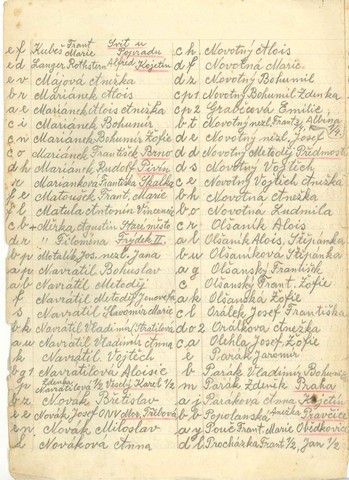 ef Kubeš Frant. Marie Svit u Popradu
ed Langer Rothstern Alfred Kojetín
ev Májová Anežka
br Mariánek Alois
ae Mariánek Alois Anežka
ci Mariánek Bohumír
cn Mariánek Bohumír Žofie
co Mariánek František Brno
dh Mariánek Rudolf Pivín
r Mariánková Františka Skalka
fe Matoušek Frant. Marie
fl Matula Antonín Vincencie
cb + Mirka, Agnetin Staré město
dz " Filomena Frýdek II.
bp Motalík Jos. nezl. Jana
ap Navrátil Bohuslav
ab Navrátil Metoděj
f Navrátil Metoděj Jenovefa
s Navrátil Slavomír Marie
bk Navrátil Vladimír Stratilová
au Navrátil Vladimír Anna
k Navrátil Vojtěch
bg1 Navrátilová Aloisie
gu Zdenka Navrátilová 1/2 Veselý Karel 1/2
bz Novák Břetislav
ee Novák Josef ONV Mor. Třebová
en Novák Miloslav
dl Nováková Anna
ch Novotný Alois
df Novotná Marie
dz Novotný Bohumil
cp1 Novotný Bohumil Zdenka
cp2 Grabicová Emilie
bt Novotný nezl. Frant. 3/4 Albína 1/4
de Novotný nezl. Josef
dd Novotný Metoděj Předmostí
ds Novotný Vojtěch
ce Novotný Vojtěch Anežka
bh Novotná Anežka
bo Novotná Ludmila
cr Olšaník Alois
al Olšaník Alois, Štěpánka
bu Olšaníková Štěpánka
ag Olšanský František
c Olšanský Frant. Žofie
ak Olšanská Žofie
cl Orálek Josef Františka
do2 Orálková Anežka
ca Olehla Josef Žofie
e Porák Jaromír
b Parák Vladimír Bohumila
m Parák Zdeněk Praha
aj Paráková Anna Kojetín
bb Popjolanská Anežka Pravčice
ay Pouč Frant. Marie Ovídkovice
dl Procházka Frant 1/2, Jan 1/2